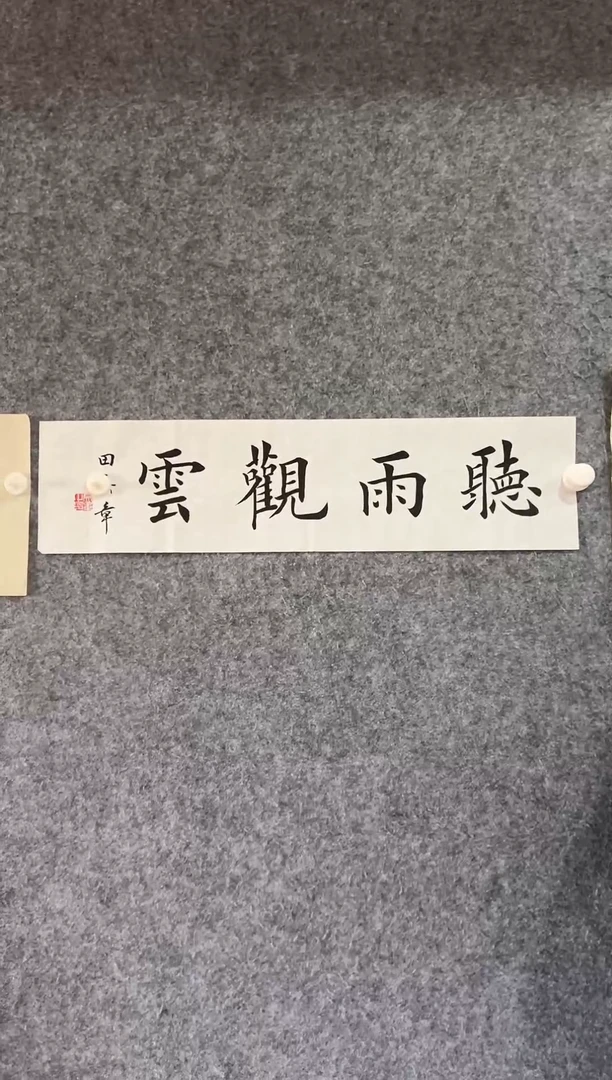 聽雨觀雲
田章